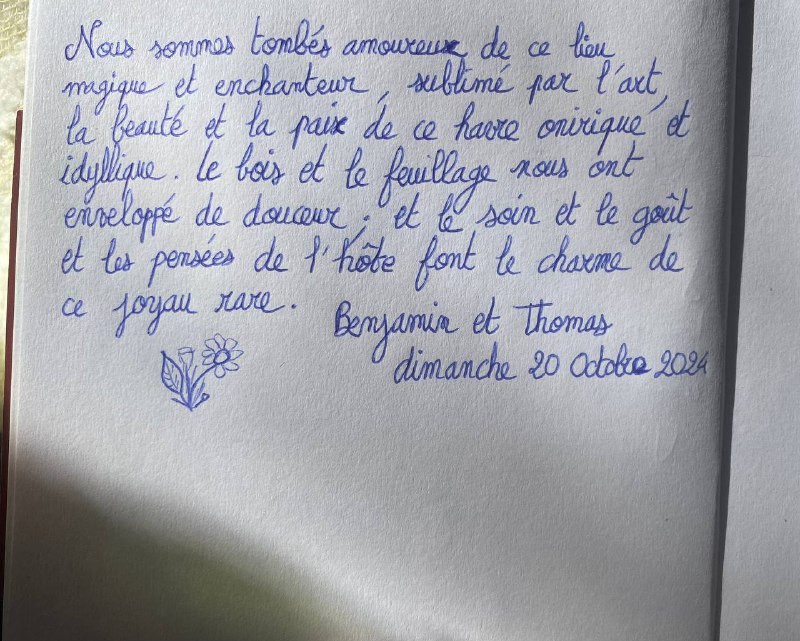 Nous sommes tombés amoureux de ce lieu
magique et enchanteur, sublimé par l'art,
la beauté et la paix de ce havre onirique et
idyllique. Le bois et le feuillage nous ont
enveloppé de douceur ; et le soin et le goût
et les pensées de l'hôte font le charme de
ce joyau rare.
Benjamin et Thomas
dimanche 20 Octobre 2024